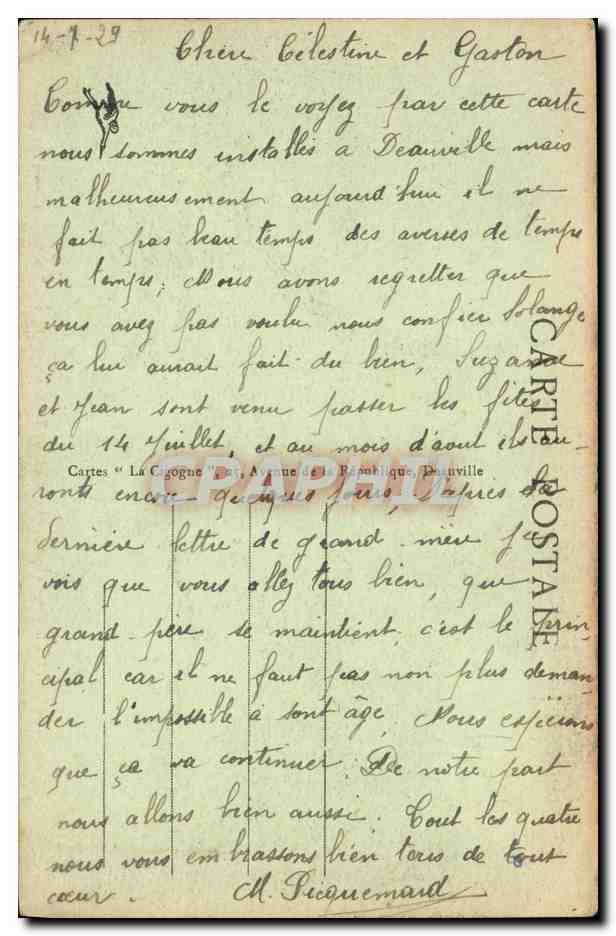 14-7-29
Chère Célestine et Gaston
Comme vous le voyez par cette carte
nous sommes installés a Deauville mais
malheureusement aujourd'hui il ne
fait pas beau temps des averses de temps
en temps, Nous avons regretter que
vous avez pas voulu nous confier Solange
ça lui aurait fait du bien, Suzanne
et Jean sont venu passer les fêtes
du 14 Juillet, et au mois d'aout ils au-
Cartes " La Cigogne Avenue de la République, Deauville
ronts encore quelques jours, d'après la
dernière lettre de grand-mère je
vois que vous allez tous bien, que
grand-père se maintient, c'est le prin-
cipal car il ne faut pas non plus deman-
der l'impossible à sont âge, Nous espérons
que ça va continuer. De notre part
nous allons bien aussi. Tout les quatre
nous vous embrassons bien tous de tout
cœur. M. Picquemard
CARTE POSTALE
CPAPHIL